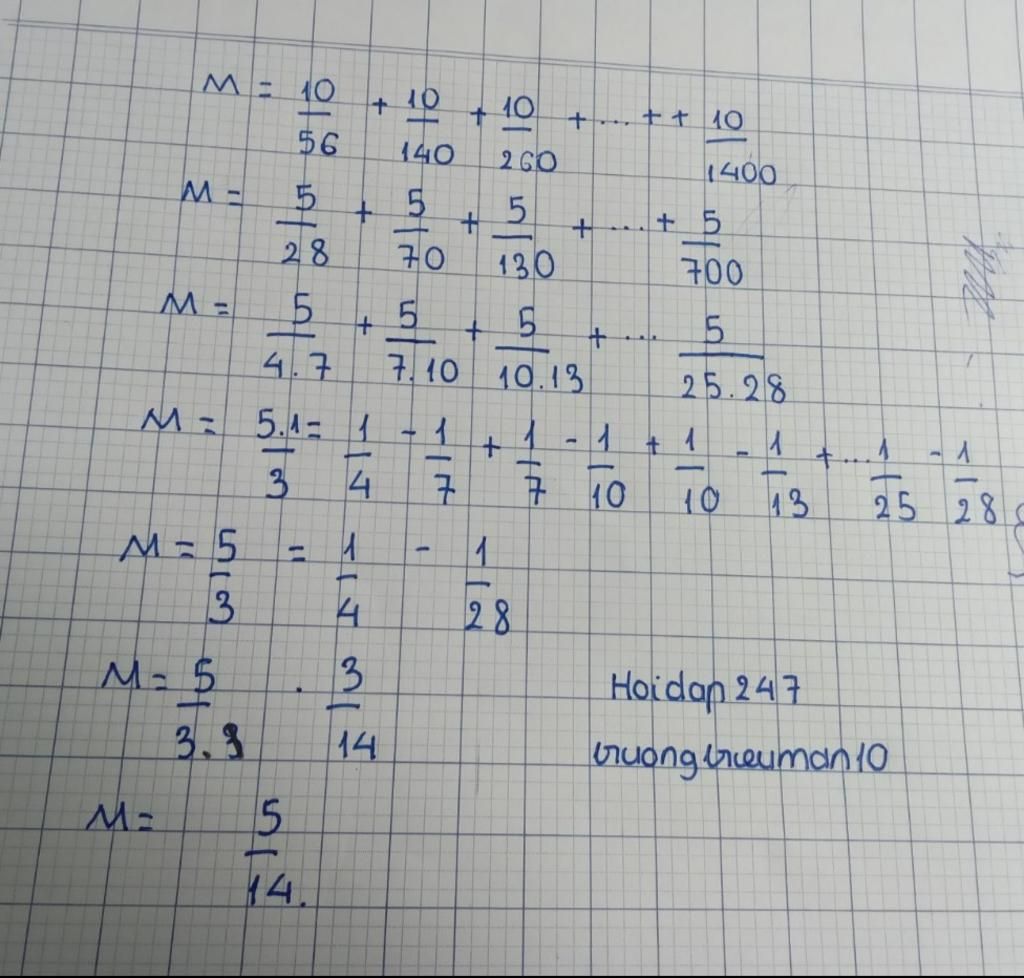 M = 10/56 + 10/140 + 10/260 + ... + + 10/1400
M = 5/28 + 5/70 + 5/130 + ... + 5/700
M = 5/4.7 + 5/7.10 + 5/10.13 + ... 5/25.28
M = 5.1/3 = 1/4 - 1/7 + 1/7 - 1/10 + 1/10 - 1/13 + ... 1/25 - 1/28
M = 5/3 = 1/4 - 1/28
M = 5/3.3 . 3/14
Hoidap247
truongtrieuman10
M = 5/14.